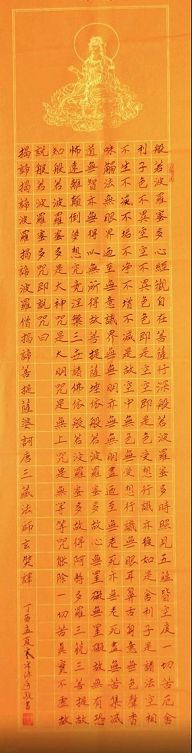 般若波羅蜜多心經觀自在菩薩行深般若波羅蜜多時照見五蘊皆空度一切苦厄舍
利子色不異空空不異色色即是空空即是色受想行識亦復如是舍利子是諸法空相
不生不滅不垢不淨不增不減是故空中無色無受想行識無眼耳鼻舌身意無色聲香
味觸法無眼界乃至無意識界無無明亦無無明盡乃至無老死亦無老死盡無苦集滅
道無智亦無得以無所得故菩提薩埵依般若波羅蜜多故心無罣礙無罣礙故無有恐
怖遠離顛倒夢想究竟涅槃三世諸佛依般若波羅蜜多故得阿耨多羅三藐三菩提故
知般若波羅蜜多是大神咒是大明咒是無上咒是無等等咒能除一切苦真實不虛故
說般若波羅蜜多咒即說咒曰
揭諦揭諦波羅揭諦波羅僧揭諦菩提薩婆訶唐三藏法師玄奘譯
丁酉孟夏